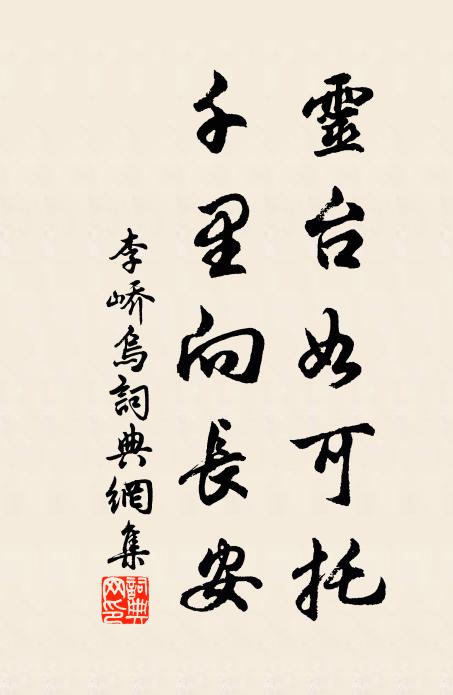 靈台如可托
千里向長安
李嶠烏詞典網集
詞典网印